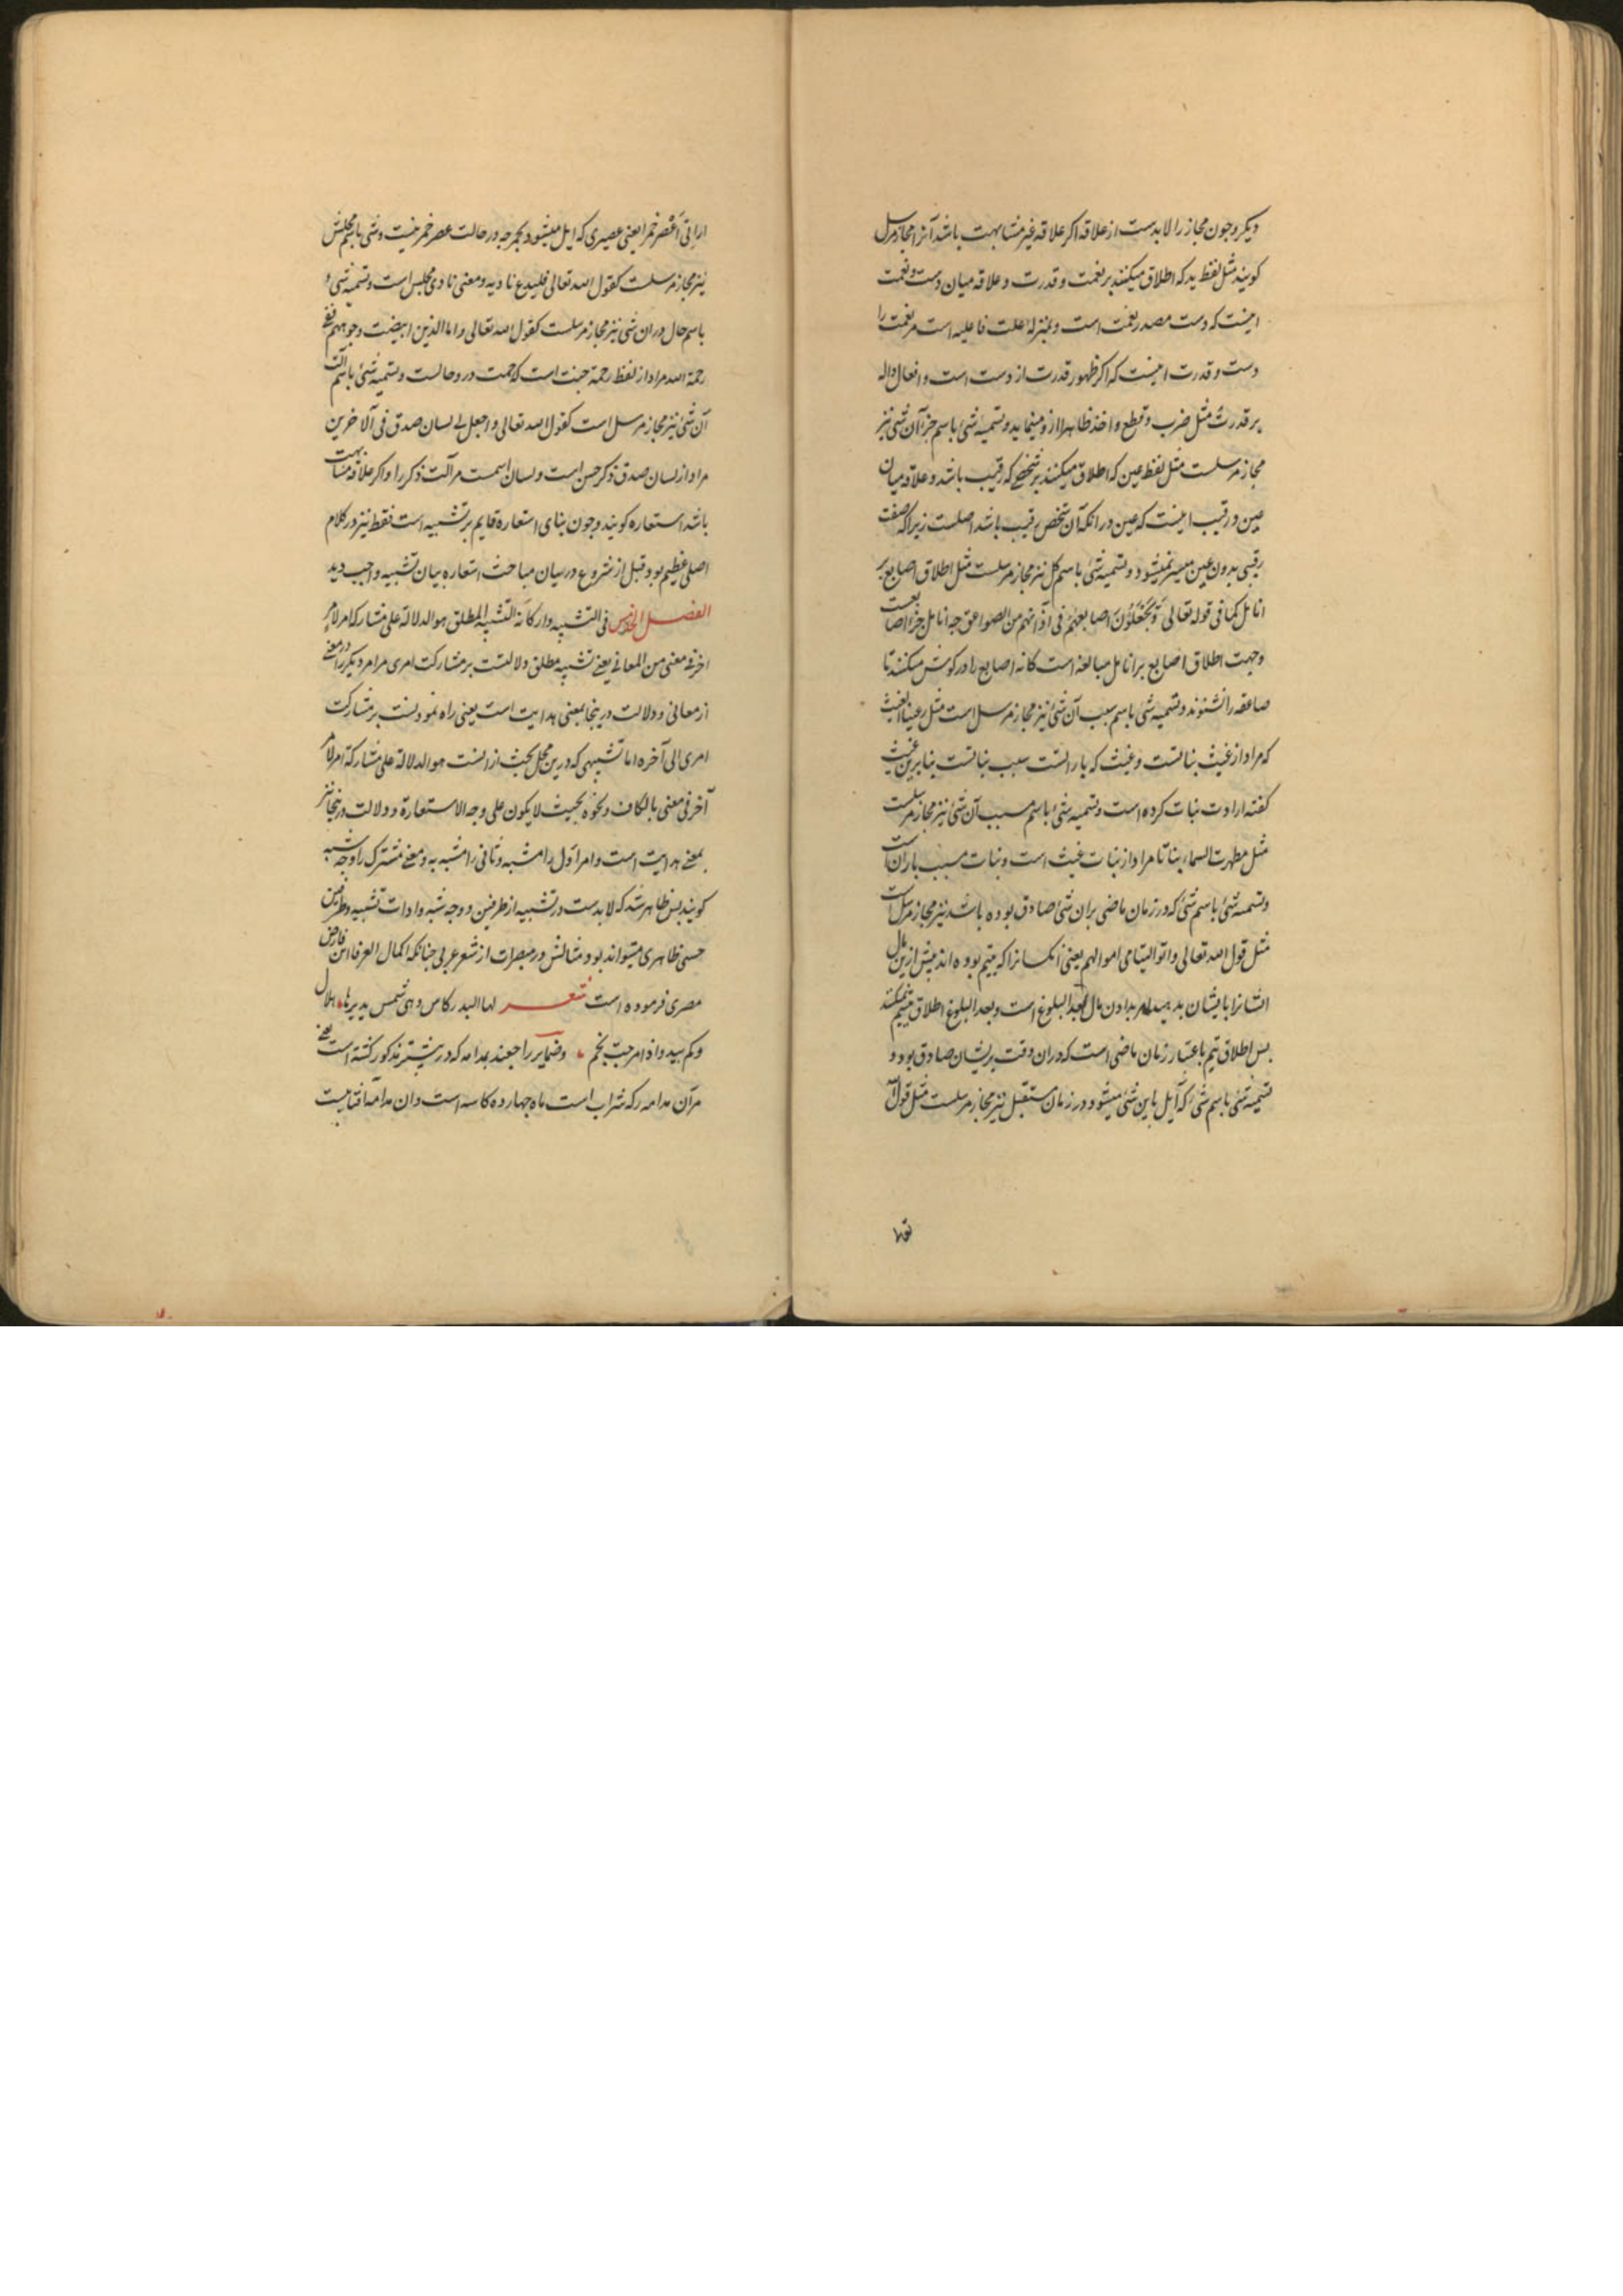 دیکر وجون مجاز را لابدست از علاقه اکر علاقه غیر مشابهت باشد آنرا مجاز مرسل
کویند مثل لفظ ید که اطلاق میکنند بر نعمت و قدرت و علاقه میان دست و نعمت
اینست که دست مصدر نعمت است و بمنزله علت فاعلیه است مر نعمت را
دست و قدرت اینست که اکثر ظهور قدرت از دست است و افعال داله
بر قدرت مثل ضرب و قطع و اخذ ظاهرا ازو مینماید و تسمیه شئ باسم جزء آن شئ نیز
مجاز مرسلست مثل لفظ عین که اطلاق میکنند بر شخصی که رقیب باشد و علاقه میان
عین و رقیب اینست که عین در انکه آن شخص رقیب باشد اصلست زیرا که صفت
رقیبی بدون عین میسر نمیشود و تسمیه شئ باسم کل نیز مجاز مرسلست مثل اطلاق اصابع بر
انامل کما فی قوله تعالی وَیَجْعَلُوْنَ اصابعهم فی آذانهم من الصواعق جه انامل جزء اصابعست
وجهت اطلاق اصابع بر انامل مبالغه است کانه اصابع را در کوش میکنند تا
صاعقه را نشنوند و تسمیه شئ باسم سبب آن شئ نیز مجاز مرسل است مثل رعینا الغیث
که مراد از غیث نباتست و غیث که بارانست سبب نباتست بنابرین غیث
کفته ارادت نبات کرده است و تسمیه شئ باسم مسبب آن شئ نیز مجاز مرسلست
مثل مطرت السماء نباتا مراد از نبات غیث است و نبات مسبب باران است
و تسمیه شئ باسم شئ که در زمان ماضی بران شئ صادق بوده باشد نیز مجاز مرسل است
مثل قول الله تعالی واتوا الیتامی اموالهم یعنی آنکسانرا که یتیم بوده اند بیش ازین مال
ایشانرا بایشان بدهید امر بدادن مال بعد البلوغ است و بعد البلوغ اطلاق یتیم نمیکنند
بس اطلاق یتیم باعتبار زمان ماضی است که دران وقت بریشان صادق بود و
تسمیه شئ باسم شئ که آیل باین شئ میشود در زمان مستقبل نیز مجاز مرسلست مثل قول الله
تعا
ارانی اَعْصر خمرا یعنی عصیری که ایل میشود بخمر جه در حالت عصر خمر نیست و شئ باسم محلش
نیز مجاز مرسلست کقول الله تعالی فلیدع نادیه و معنی نادی مجلس است و تسمیه شئ
باسم حال دران شئ نیز مجاز مرسلست کقول الله تعالی واما الذین ابیضت وجوههم ففی
رحمة الله مراد از لفظ رحمة جنت است که رحمت درو حالست و تسمیه شئ باسم آلت
آن شئ نیز مجاز مرسل است کقول الله تعالی واجعل لی لسان صدق فی الآخرین
مراد از لسان صدق ذکر حسن است و لسان اسمست مر آلت ذکر را و اکر علاقه مشابهت
باشد استعاره کویند و جون بنای استعاره قایم بر تشبیه است فقط نیز در کلام
اصلی عظیم بود قبل از شروع در بیان مباحث استعاره بیان تشبیه واجب دید
الفصل الخامس فی التشبیه و ارکانه التشبیه المطلق هو الدلالة علی مشارکة امر لامر
اخر فی معنی من المعانی یعنی تشبیه مطلق دلالتست بر مشارکت امری مر امر دیکر را در معنی
از معانی و دلالت درینجا بمعنی هدایت است یعنی راه نمودنست بر مشارکت
امری الی آخره اما تشبیهی که درین محل بحث ازانست هو الدلالة علی مشارکة امر لامر
آخر فی معنی بالکاف و نحوه بحیث لا یکون علی وجه الاستعارة و دلالت درینجا نیز
بمعنی هدایت است و امر اول را مشبه و ثانی را مشبه به و معنی مشترک را وجه شبه
کویند بس ظاهر شد که لابدست در تشبیه از طرفین و وجه شبه و ادات تشبیه و طرفین
حسی ظاهری میتواند بود و مثالش در مبصرات از شعر عربی جنانکه اکمال العرفا ابن فارض
مصری فرموده است شعر لها البدر کاس وهی شمس یدیرها هلال
وکم یبدو اذا مزجت نجم وضمایر راجعند بمدامه که در بیشتر مذکور کشته است یعنی
مر آن مدامه را که شراب است ماه جهارده کاسه است و ان مدامه آفتابیست